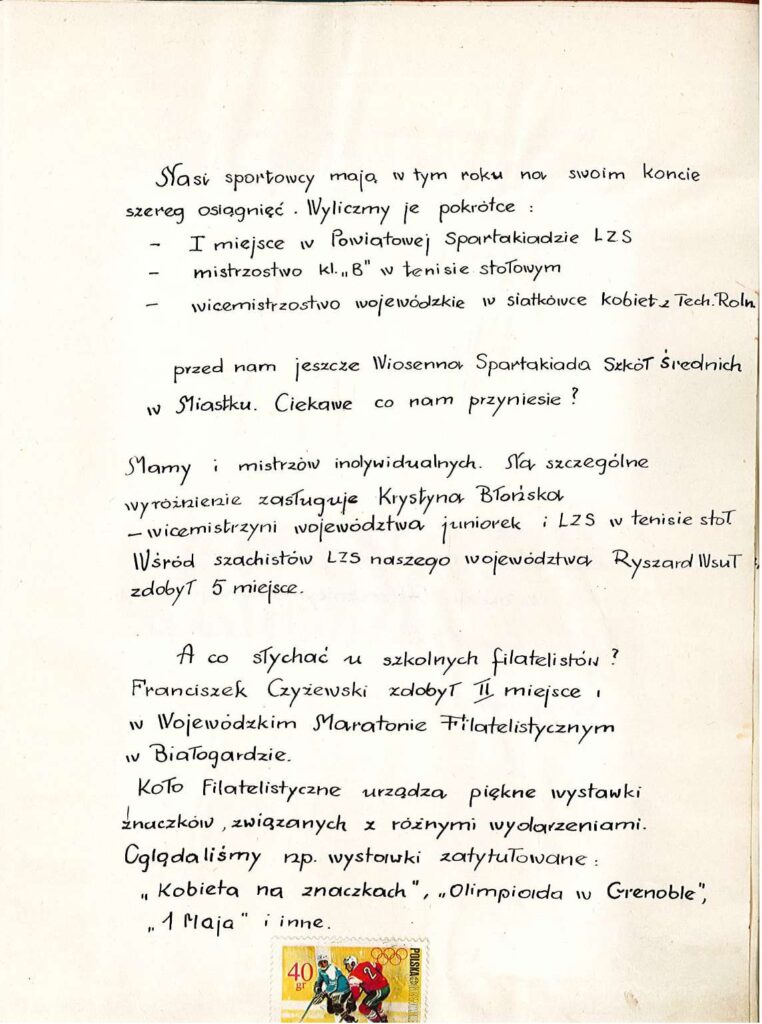 Nasi sportowcy mają w tym roku na swoim koncie
szereg osiągnięć. Wyliczmy je pokrótce :
– I miejsce w Powiatowej Spartakiadzie LZS
– mistrzostwo kl. „B" w tenisie stołowym
– wicemistrzostwo wojewódzkie w siatkówce kobiet z Tech. Roln.
przed nam jeszcze Wiosenna Spartakiada Szkół średnich
w Miastku. Ciekawe co nam przyniesie ?
Mamy i mistrzów indywidualnych. Na szczególne
wyróżnienie zasługuje Krystyna Błońska
– wicemistrzyni województwa juniorek i LZS w tenisie stoł
Wśród szachistów LZS naszego województwa Ryszard Wsuł
zdobył 5 miejsce.
A co słychać u szkolnych filatelistów ?
Franciszek Czyżewski zdobył II miejsce
w Wojewódzkim Maratonie Filatelistycznym
w Białogardzie.
Koło Filatelistyczne urządza piękne wystawki
znaczków, związanych z różnymi wydarzeniami.
Oglądaliśmy np. wystawki zatytułowane :
„Kobieta na znaczkach", „Olimpiada w Grenoble",
„1 Maja" i inne.
40
gr
2
POLSKA